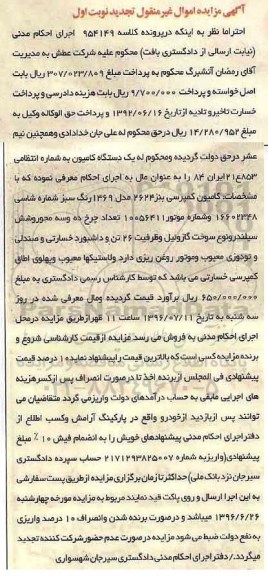 آگهی مزایده اموال غیر منقول تجدید نوبت اول
احتراما نظر به اینکه درپرونده کلاسه ۹۵۴۱۴۹ اجرای احکام مدنی
(نیابت ارسالی از دادگستری بافت) محکوم علیه شرکت عطش به مدیریت
آقای رمضان آتشبرگ محکوم به پرداخت مبلغ ۳۰۷/۰۲۳/۸۰۹ ریال بابت
اصل خواسته و پرداخت ۹/۷۰۰/۰۰۰ ریال بابت هزینه دادرسی و پرداخت
خسارت تاخیر و تادیه از تاریخ ۱۳۹۲/۰۶/۱۶ و پرداخت حق الوکاله وکیل به
مبلغ ۱۴/۲۸۰/۹۵۲ ریال درحق محکوم له علی جان خدادادی وهمچنین نیم
عشر درحق دولت گردیده ومحکوم له یک دستگاه کامیون به شماره انتظامی
۸۵۳ع۲۱ ایران ۸۴ را به عنوان مال به اجرای احکام معرفی نموده که با
مشخصات: کامیون کمپرسی بنز ۲۶۲۴ مدل ۱۳۶۹ رنگ سبز شماره شاسی
۱۶۶۰۲۳۴۸ وشماره موتور ۱۰۰۵۶۴۱۱ تعداد چرخ ده وسه محور وشش
سیلندر ونوع سوخت گازوئیل وظرفیت ۲۶ تن و داشبورد خسارتی و صندلی
و تودوزی معیوب وموتور روغن ریزی دارد ولاستیکها معیوب وپهلوی اطاق
کمپرسی خسارتی می باشد که توسط کارشناس رسمی دادگستری به مبلغ
۶۵۰/۰۰۰/۰۰۰ ریال برآورد قیمت گردیده ومال معرفی شده در روز
سه شنبه به تاریخ ۱۳۹۶/۰۷/۱۱ ساعت ۱۱ ظهر ازطریق مزایده درمحل
اجرای احکام مدنی به فروش می رسد مزایده ازقیمت کارشناسی شروع و
برنده مزایده کسی است که بالاترین قیمت را پیشنهاد نماید ۱۰ درصد قیمت
پیشنهادی فی المجلس ازبرنده اخذ تا درصورت انصراف پس ازکسر هزینه
های اجرایی مابقی به حساب درآمدهای دولت واریز می گردد متقاضیان می
توانند پس ازبازدید ازخودرو واقع در پارکینگ آرامش وکسب اطلاع از
دفتر اجرای احکام مدنی پیشنهادهای خویش را به انضمام فیش ۱۰٪ مبلغ
پیشنهادی (واریز به شماره ۲۱۷۱۲۹۳۸۲۵۰۰۷ حساب سپرده دادگستری
سیرجان نزد بانک ملی) حداکثر تا زمان برگزاری مزایده ازطریق پست سفارشی
به این اجرا ارسال و روی پاکت قید نمایند مربوط به مزایده مورخه چهارشنبه
۱۳۹۶/۶/۲۶ میباشد و درصورت برنده شدن وانصراف ۱۰ درصد واریزی
به نفع دولت ضبط می شود مزایده درصورت عدم حضور شرکت کننده تجدید
میگردد./ دفتر اجرای احکام مدنی دادگستری سیرجان شهسواری